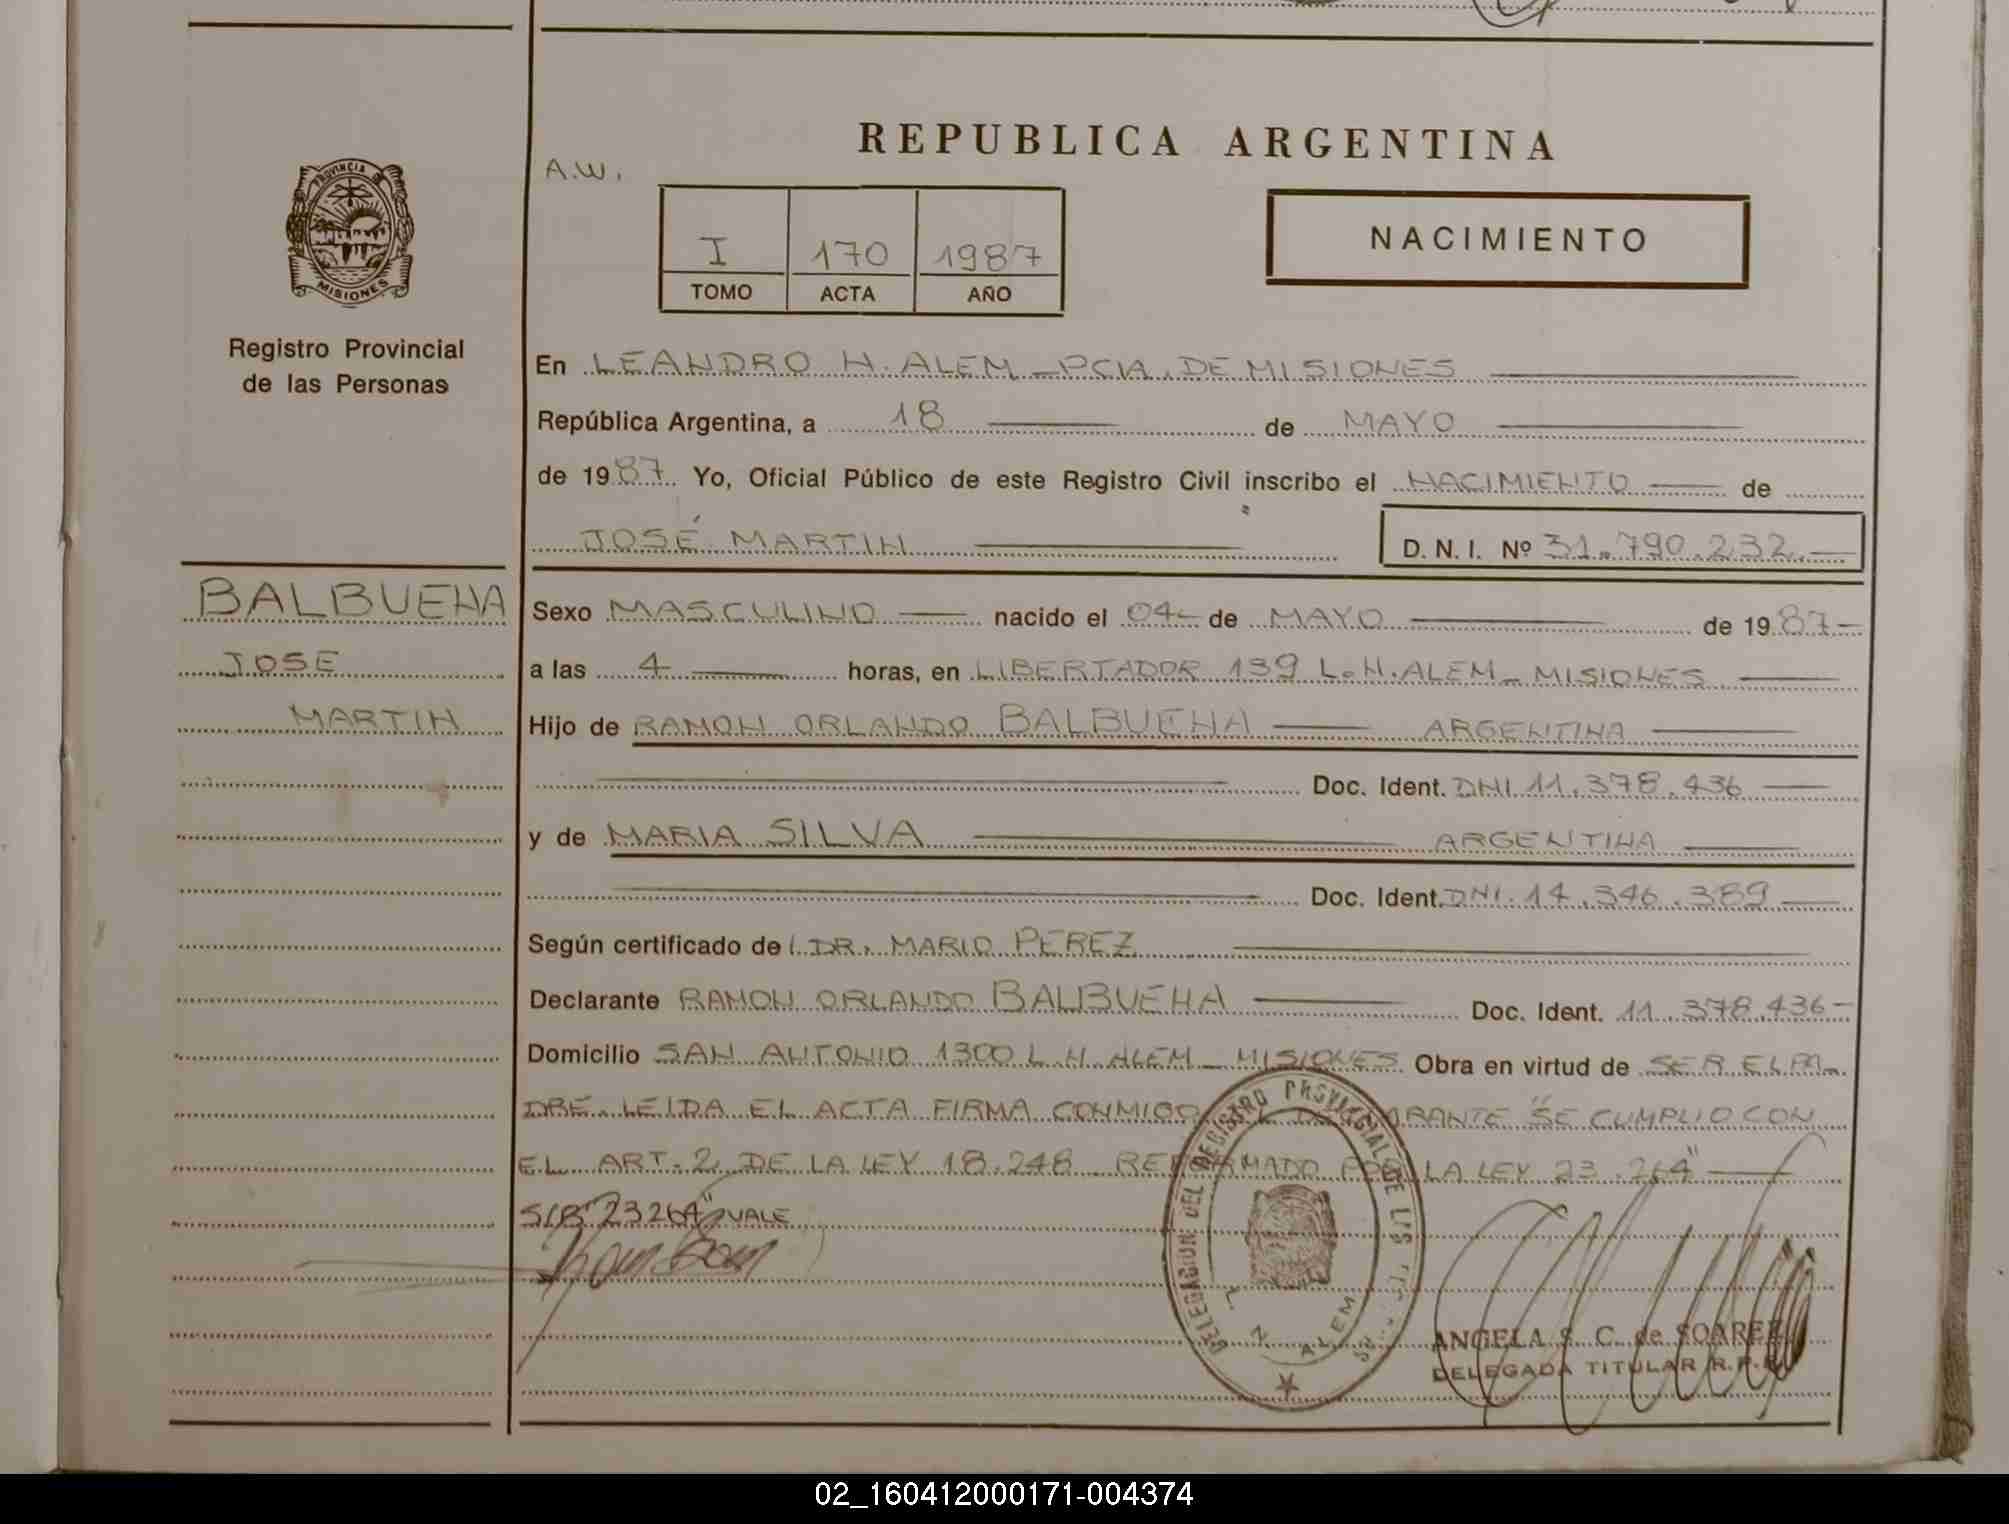 REPUBLICA ARGENTINA
A.W.
PROVINCIA DE
MISIONES
I 170 1987
TOMO ACTA AÑO
NACIMIENTO
Registro Provincial
de las Personas
En LEANDRO H. ALEM - PCIA. DE MISIONES
República Argentina, a 18 de MAYO
de 1987. Yo, Oficial Público de este Registro Civil inscribo el NACIMIENTO de
JOSÉ MARTIN D. N. I. Nº 31.790.232.-
BALBUENA
JOSE
MARTIN
Sexo MASCULINO nacido el 04- de MAYO de 1987-
a las 4 horas, en LIBERTADOR 139 L.H. ALEM - MISIONES
Hijo de RAMON ORLANDO BALBUENA ARGENTINA
Doc. Ident. DNI 11.378.436
y de MARIA SILVA ARGENTINA
Doc. Ident. DNI. 14.346.389
Según certificado de DR. MARIO PEREZ
Declarante RAMON ORLANDO BALBUENA Doc. Ident. 11.378.436-
Domicilio SAN ANTONIO 1300 L.H. ALEM - MISIONES Obra en virtud de SER EL PA-
DRE. LEIDA EL ACTA FIRMA CONMIGO "SE CUMPLIO CON
EL ART. 2 DE LA LEY 18.248 REFORMADO POR LA LEY 23.264"
S/R"23264" VALE
DELEGACION DEL REGISTRO PROVINCIAL DE LAS
ALEM
ANGELA S. C. de SOAREZ
DELEGADA TITULAR R.P.P.
02_160412000171-004374